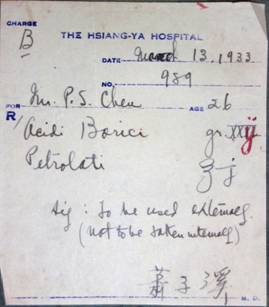 CHARGE
B
THE HSIANG-YA HOSPITAL
DATE March 13, 1933
NO. 989
FOR Mr. P. S. Chen AGE 26
R/ Acidi Borici gr.
Petrolati ℥j
Sig: To be used externally
(not to be taken internally)
蕭子溪
M. D.